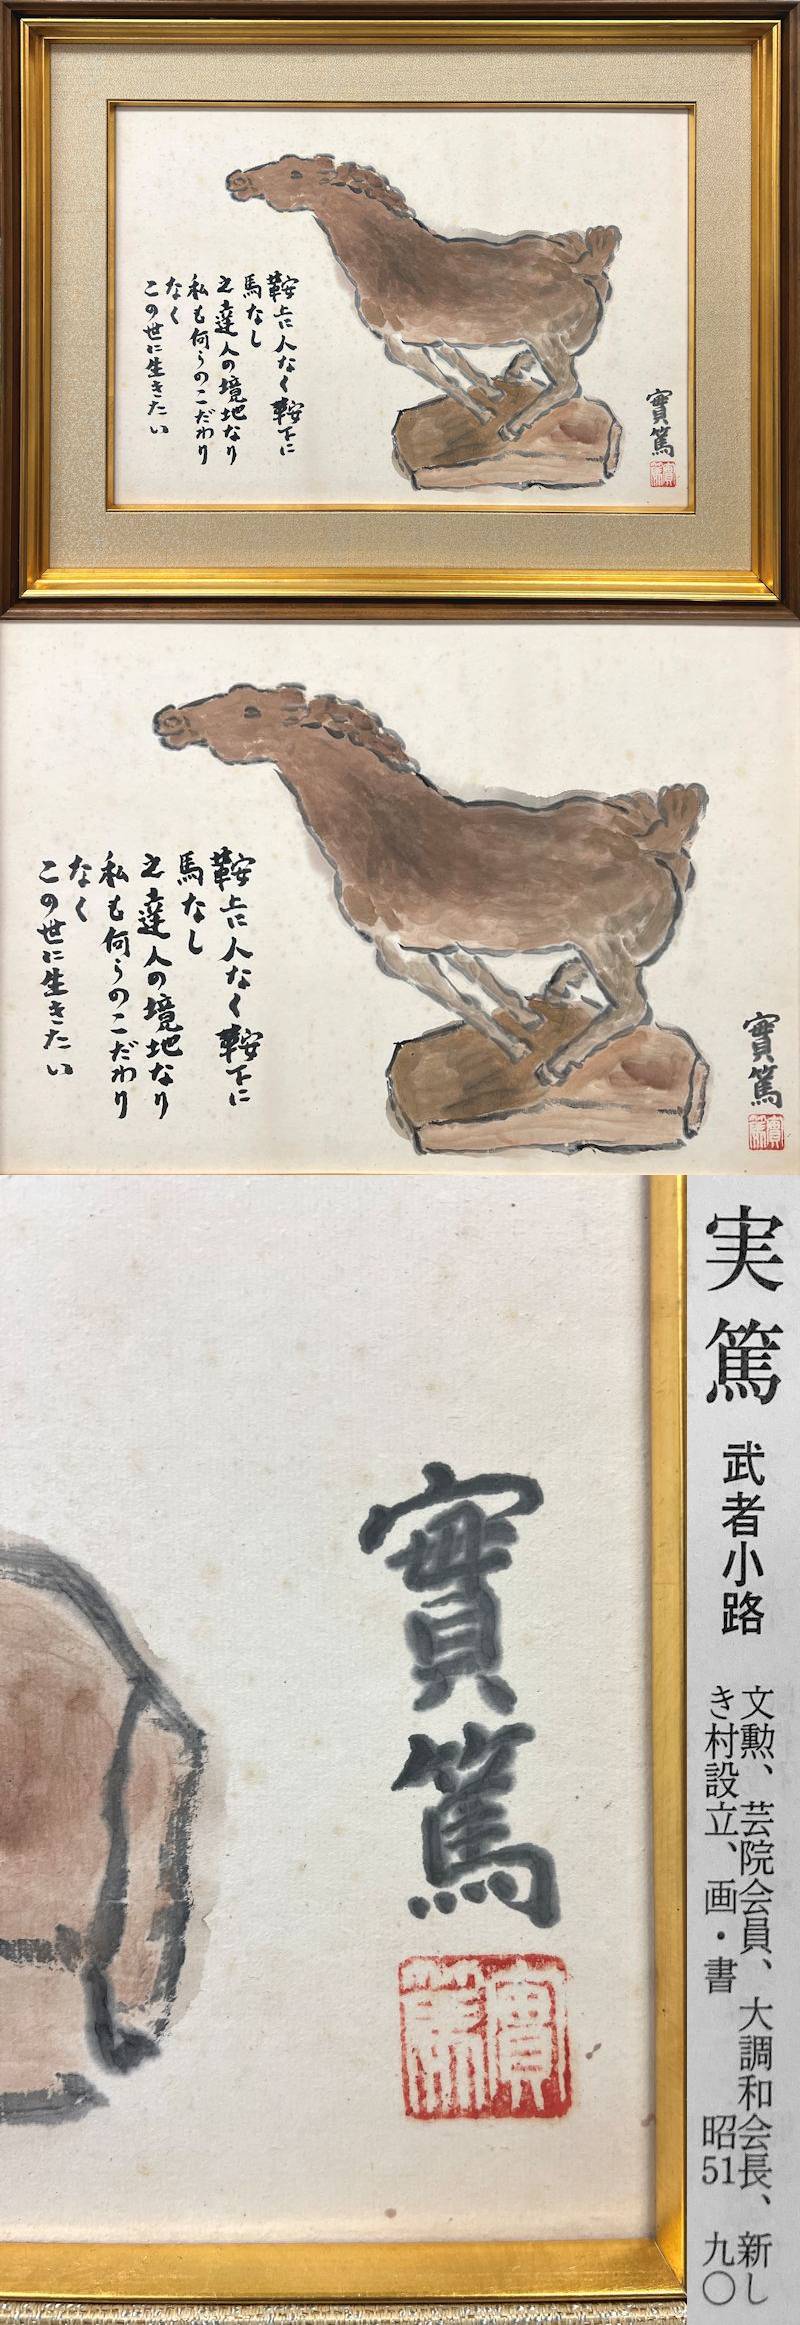 鞍上に人なく鞍下に
馬なし
之達人の境地なり
私も何らのこだわり
なく
この世に生きたい
實篤
實篤
鞍上に人なく鞍下に
馬なし
之達人の境地なり
私も何らのこだわり
なく
この世に生きたい
實篤
實篤
實篤
實篤
実篤 武者小路
文勲、芸院会員、大調和会長、新し
き村設立、画・書 昭51 九〇